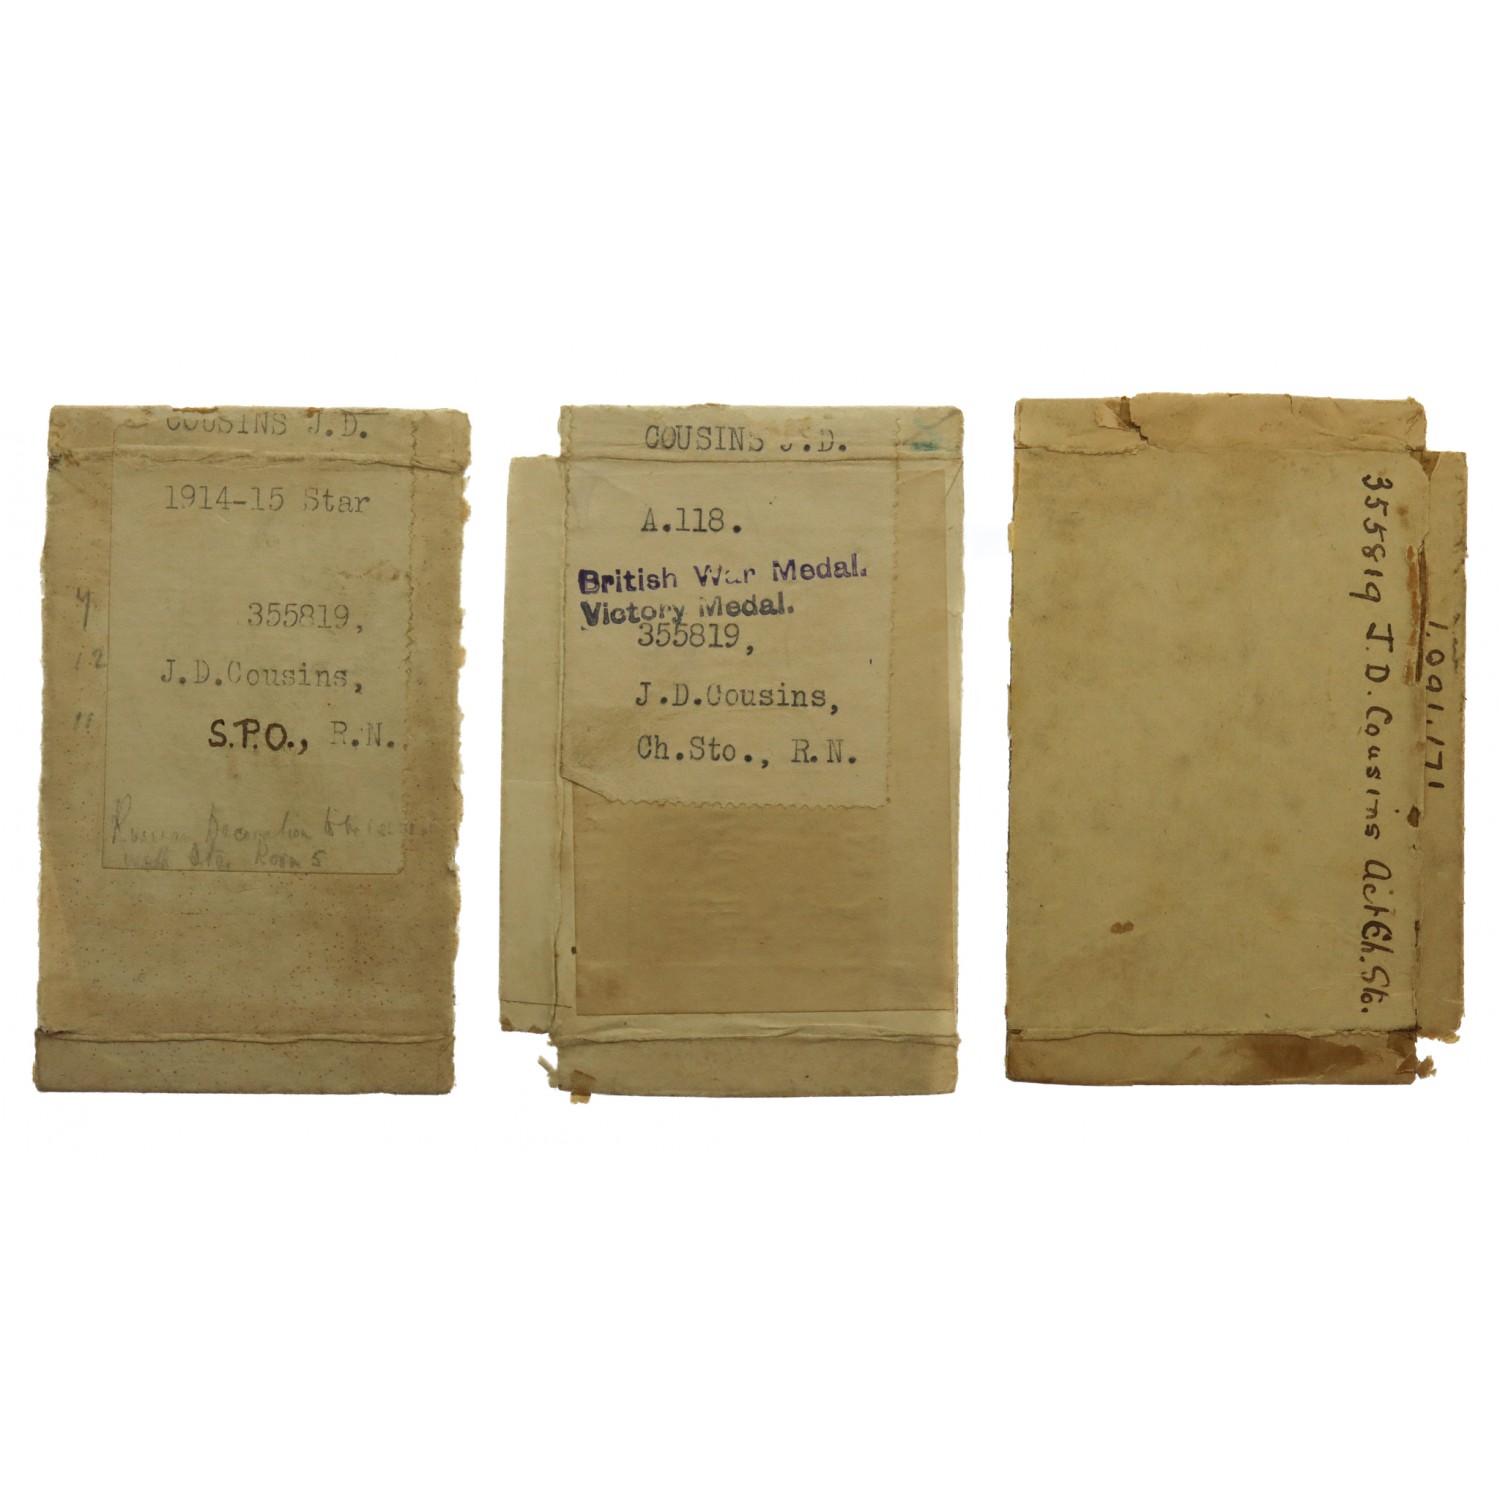 COUSINS J.D.
1914-15 Star
355819,
J.D.Cousins,
S.P.O., R.N.
Russian Decoration to be issued
Room 5
12
11
COUSINS J.D.
A.118.
British War Medal.
Victory Medal.
355819,
J.D.Cousins,
Ch.Sto., R.N.
355819 J.D. Cousins Act Ch. Sto.
1.091.171